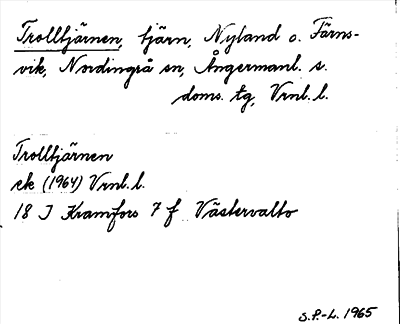 Trolltjärnen, tjärn, Nyland o. Färns-
vik, Nordingrå sn, Ångermanl. s.
doms. tg, Vrnl. l.
Trolltjärnen
ek (1964) Vrnl. l.
18 J Kramfors 7 f Västervalto
S.P.-L. 1965